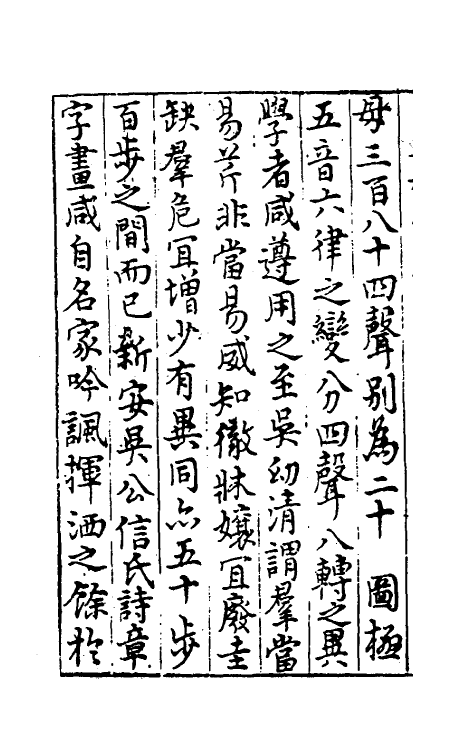 母三百八十四聲別為二十 圖極
五音六律之變分四聲八轉之異
學者咸遵用之至吳幼清謂羣當
易芹非當易威知徹牀孃宜廢圭
缺羣危宜增少有異同亦五十步
百步之間而已新安吳公信氏詩章
字畫咸自名家吟諷揮洒之餘於